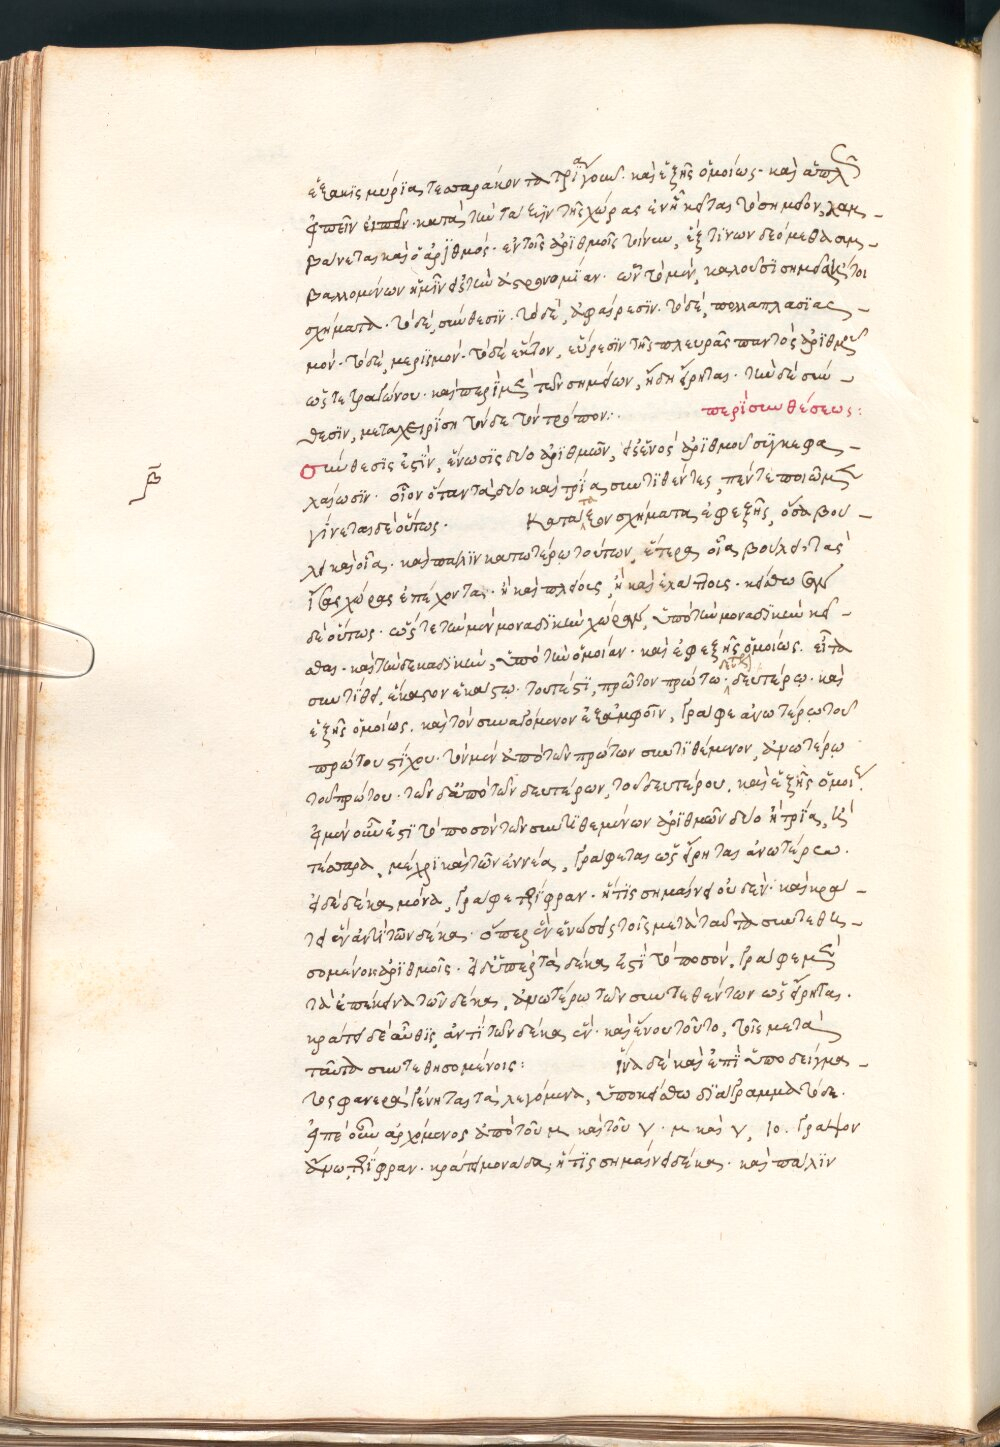 ἑξάκις μύρια τεσσαράκοντα τρία καὶ ἑξῆς ὁμοίως· καὶ ἁπλῶς
εἰπεῖν · κατὰ τὴν τάξιν τῆς χώρας ἐν ᾗ κεῖται τὸ σημεῖον, λαμ-
βάνεται καὶ ὁ ἀριθμός· ἐν τοῖς ἀριθμοῖς τοίνυν, ἓξ τινῶν δεόμεθα συμ-
βαλλομένων ἡμῖν εἰς τὴν ἀστρονομίαν· ὧν τὸ μὲν, καλοῦσι σημεῖα ἤτοι
σχήματα· τὸ δὲ, σύνθεσιν· τὸ δὲ, ἀφαίρεσιν· τὸ δὲ, πολλαπλασιασ-
μόν· τὸ δὲ, μερισμόν· τὸ δὲ ἕκτον, εὕρεσιν τῆς πλευρᾶς παντὸς ἀριθμοῦ
ὡς τετραγώνου· καὶ περὶ μὲν τῶν σημείων, ἤδη εἴρηται· τὴν δὲ σύν-
θεσιν, μεταχειρίση τόνδε τὸν τρόπον:· περὶ συνθέσεως:
β̄ Σύνθεσις ἐστὶν, ἕνωσις δύο ἀριθμῶν, εἰς ἑνὸς ἀριθμοῦ συγκεφα-
λαίωσιν· οἷον ὅταν τὰ δύο καὶ τρία συντιθέντες, πέντε ποιῶμεν
γίνεται δὲ οὕτως· Κατάταξον σχήματα ἐφεξῆς, ὅσα βού-
λει καὶ οἷα· καὶ πάλιν κατωτέρω τούτων, ἕτερα οἷα βούλει τὰς
ἴσας χώρας ἐπέχοντα· ἢ καὶ πλείους, ἢ καὶ ἐλάττους· κείσθωσαν
δὲ οὕτως· ὥστε τὴν μὲν μοναδικὴν χώραν, ὑπὸ τὴν μοναδικὴν κεῖ-
σθαι· καὶ τὴν δεκαδικὴν, ὑπὸ τὴν ὁμοίαν· καὶ ἐφεξῆς ὁμοίως· εἶτα
συντίθει, ἕκαστον ἑκάστω· τουτέστι, πρῶτον πρώτω· δεύτερον δευτέρω· καὶ
ἑξῆς ὁμοίως· καὶ τὸν συναγόμενον ἐξ ἀμφοῖν, γράφε ἀνωτέρω τοῦ
πρώτου στίχου· τὸν μὲν ἀπὸ τῶν πρώτων συντιθέμενον, ἀνωτέρω
τοῦ πρώτου· τῶν δὲ ἀπὸ τῶν δευτέρων, τοῦ δευτέρου, καὶ ἑξῆς ὁμοίως·
εἰ μὲν οὖν ἐστὶ τὸ ποσὸν τῶν συντιθεμένων ἀριθμῶν δύο ἢ τρία, ἢ
τέσσαρα, μέχρι καὶ τῶν ἐννέα, γράφεται ὡς εἴρηται ἀνωτέρω·
εἰ δὲ δέκα μόνα, γράφε τζίφραν· ἥτις σημαίνει οὐδέν· καὶ κρά-
τει ἓν ἀντὶ τῶν δέκα· ὅπερ ἓν ἑνώσεις τοῖς μετὰ ταῦτα συντεθη-
σομένοις ἀριθμοῖς· εἰ δ' ὑπὲρ τὰ δέκα ἐστὶ τὸ ποσόν, γράφε μὲν
τὰ ἐπέκεινα τῶν δέκα, ἀνωτέρω τῶν συντεθέντων ὡς εἴρηται·
κράτει δὲ αὖθις, ἀντὶ τῶν δέκα ἕν· καὶ ἕνου τοῦτο, τοῖς μετὰ
ταῦτα συντεθησομένοις: ἵνα δὲ καὶ ἐπὶ ὑποδείγμα-
τος φανερὰ γένηται τὰ λεγόμενα, ὑποκείσθω διάγραμμα τόδε·
εἰπὲ οὖν ἀρχόμενος ἀπὸ τοῦ καὶ τοῦ · καὶ , 10· γράψον
ἄνω τζίφραν· κράτει μονάδα, ἥτις σημαίνει δέκα· καὶ πάλιν